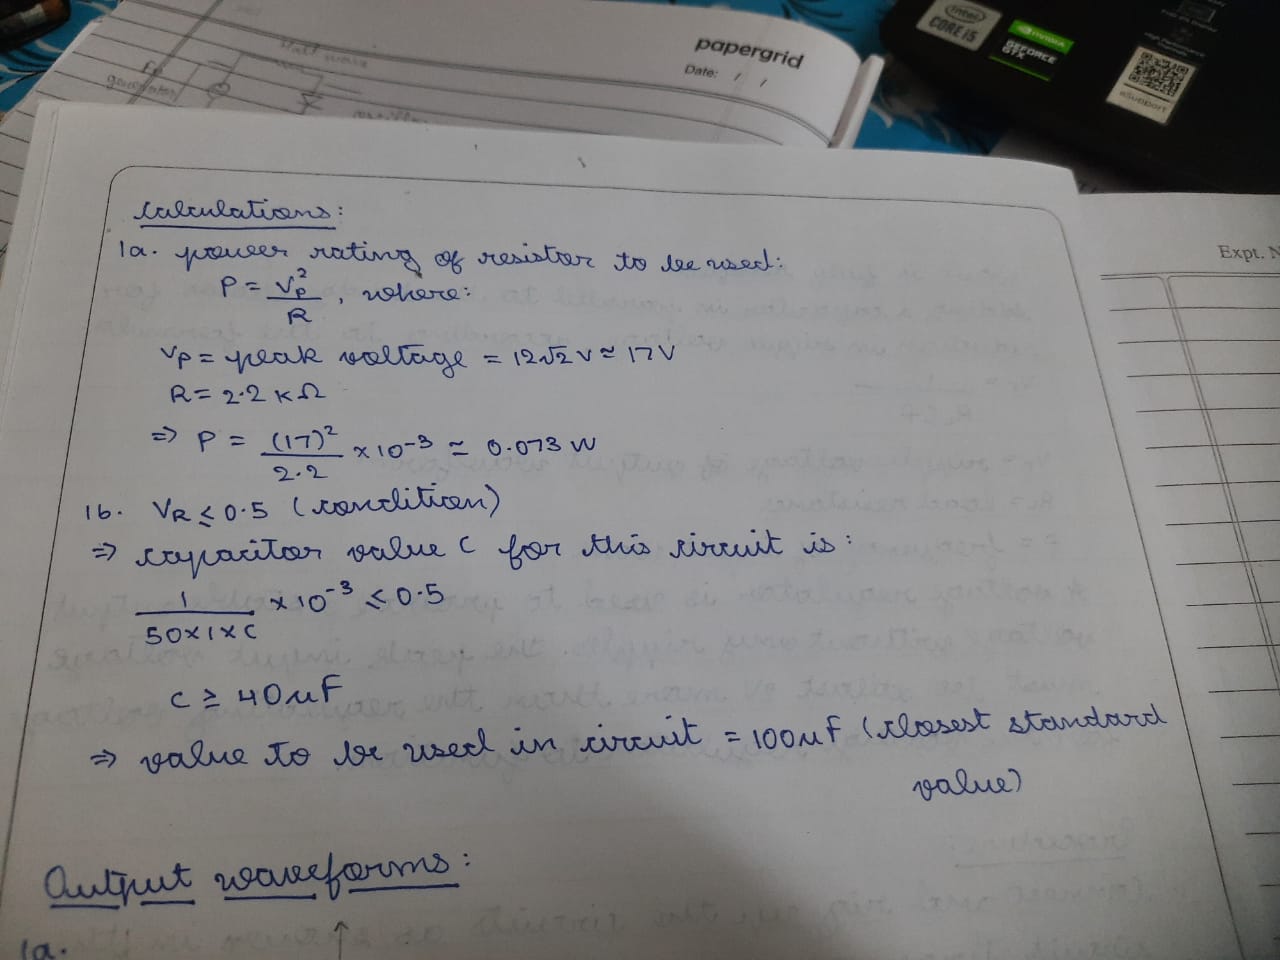 intel
CORE i5
NVIDIA
GEFORCE
GTX
eSupport
papergrid
Date: / /
Half wave
generator
Expt. N
Calculations:
1a. power rating of resistor to be used:
P = Vp²/R, where:
Vp = peak voltage = 12√2 V ≃ 17V
R = 2.2 KΩ
⇒ P = (17)²/2.2 × 10⁻³ ≃ 0.073 W
1b. VR ≤ 0.5 (condition)
⇒ capacitor value C for this circuit is:
1/(50×1×C) × 10⁻³ ≤ 0.5
C ≥ 40μF
⇒ value to be used in circuit = 100μF (closest standard
value)
Output waveforms:
1a.